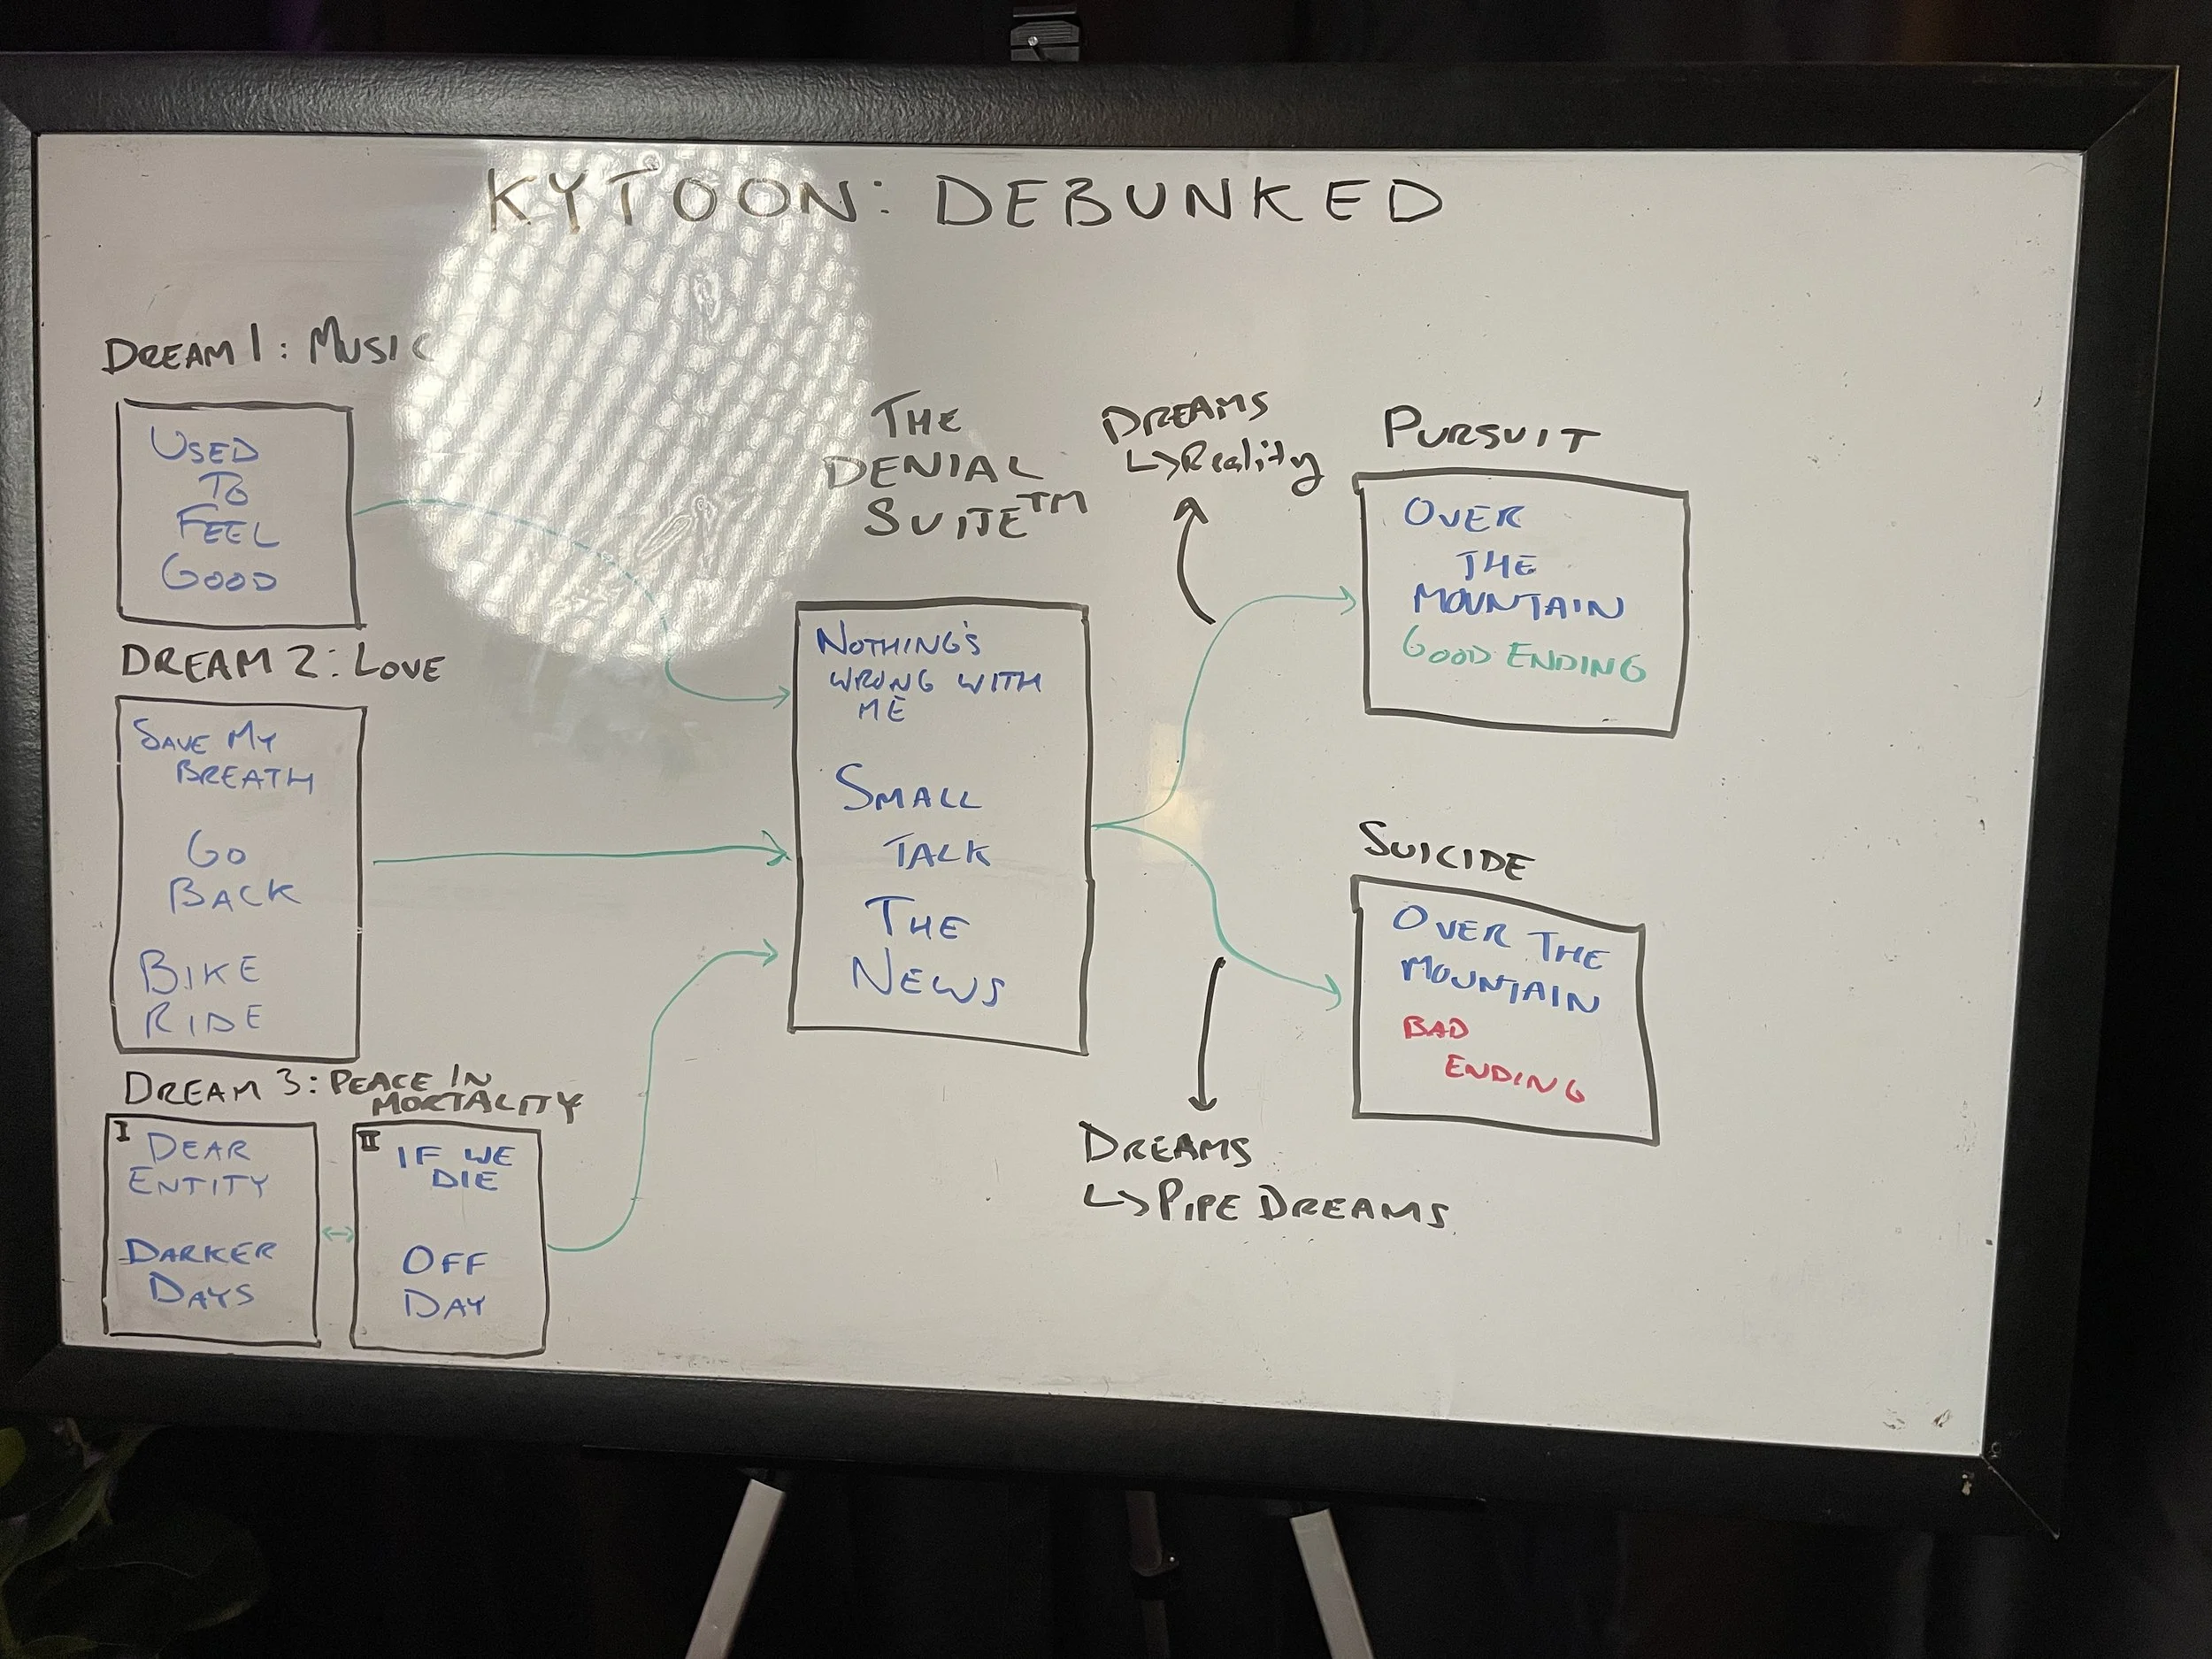 KYTOON: DEBUNKED
DREAM 1: MUSIC
USED
TO
FEEL
GOOD
DREAM 2: LOVE
SAVE MY
BREATH
GO
BACK
BIKE
RIDE
DREAM 3: PEACE IN
MORTALITY
I
DEAR
ENTITY
DARKER
DAYS
II
IF WE
DIE
OFF
DAY
THE
DENIAL
SUITE™
NOTHING'S
WRONG WITH
ME
SMALL
TALK
THE
NEWS
DREAMS
↳Reality
PURSUIT
OVER
THE
MOUNTAIN
GOOD ENDING
SUICIDE
OVER THE
MOUNTAIN
BAD
ENDING
DREAMS
↳PIPE DREAMS